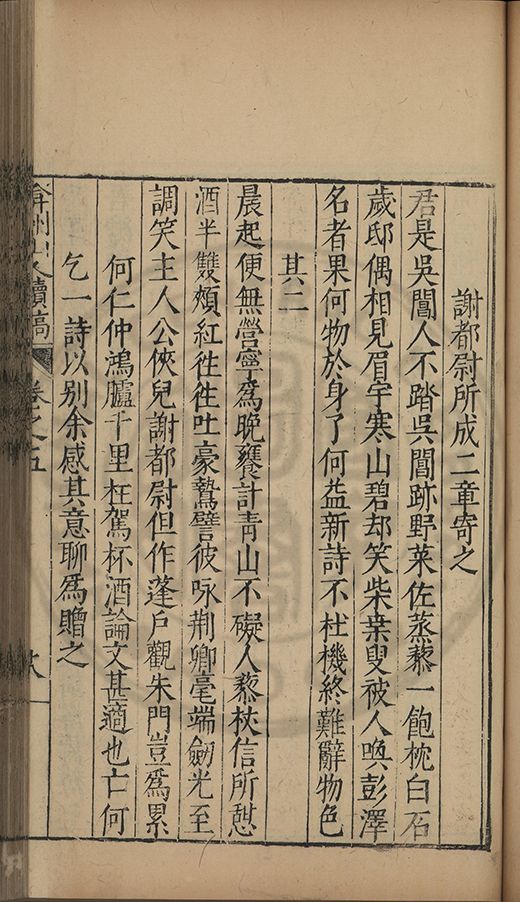 謝都尉所成二章寄之
君是吳閶人不踏吳閶跡野菜佐蒸藜一飽枕白石
歲邸偶相見眉宇寒山碧却笑柴桑叟被人喚彭澤
名者果何物於身了何益新詩不杜機終難辭物色
其二
晨起便無營寧爲晩饔計青山不礙人藜杖信所憇
酒半雙頰紅徃徃吐豪鷙譬彼咏荆卿毫端劒光至
調笑主人公俠兒謝都尉但作蓬戶觀朱門豈爲累
何仁仲鴻臚千里枉駕杯酒論文甚適也亡何
乞一詩以別余感其意聊爲贈之
弇州山人續稿
卷之五